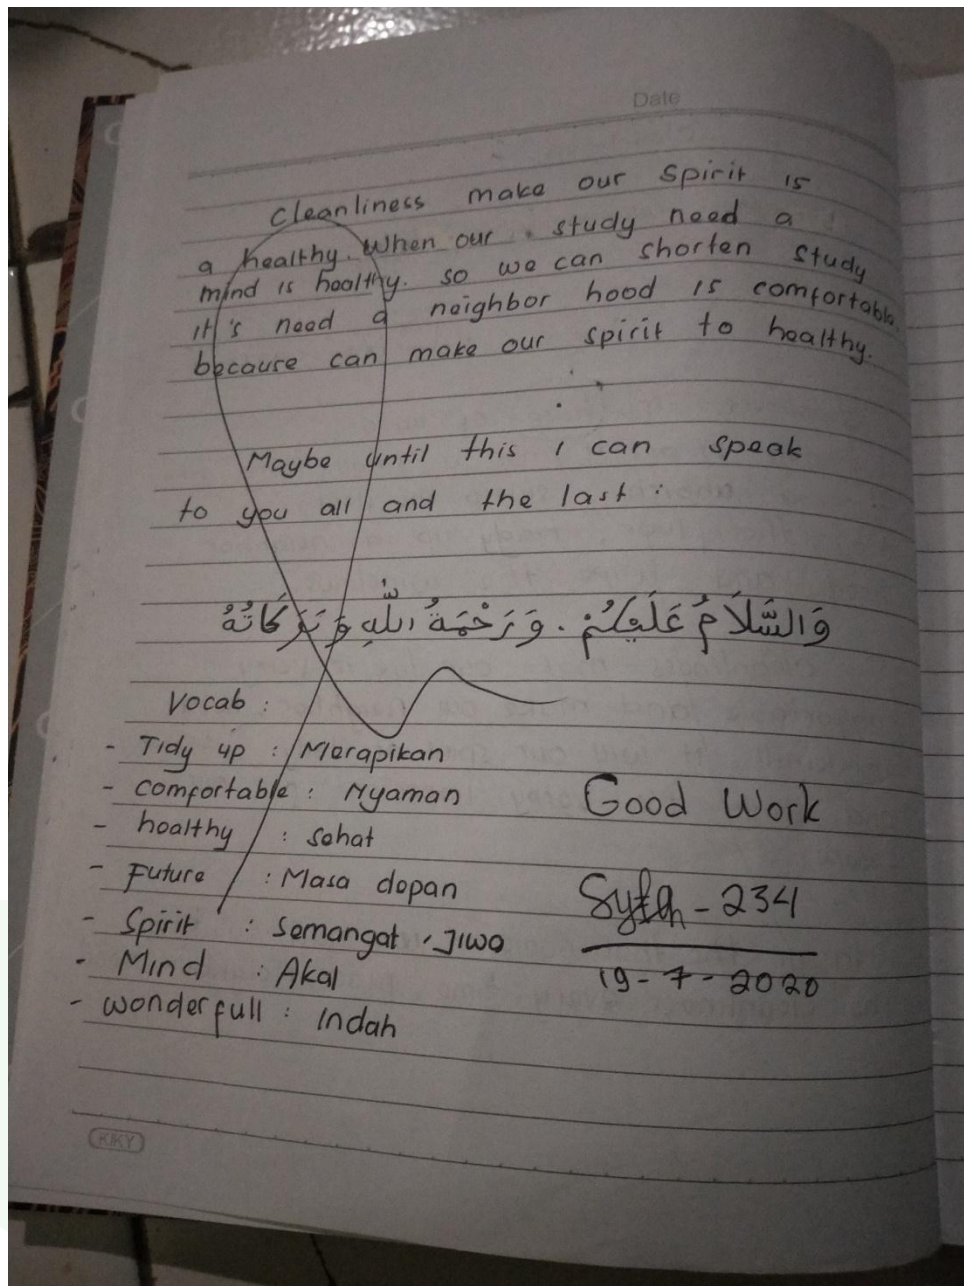 Date
Cleanliness make our spirit is
a healthy. When our study need a
mind is healthy. so we can shorten study
it's need a neighbor hood is comfortable.
because can make our spirit to healthy.
Maybe until this I can speak
to you all and the last :
وَالسَّلَامُ عَلَيْكُمْ . وَرَحْمَةُ اللّٰهِ وَبَرَكَاتُهُ
Vocab :
- Tidy up : Merapikan
- comfortable : Nyaman
- healthy : sehat
- Future : Masa depan
- Spirit : Semangat, Jiwa
- Mind : Akal
- wonderfull : Indah
Good Work
- 234
19-7-2020
KIKY